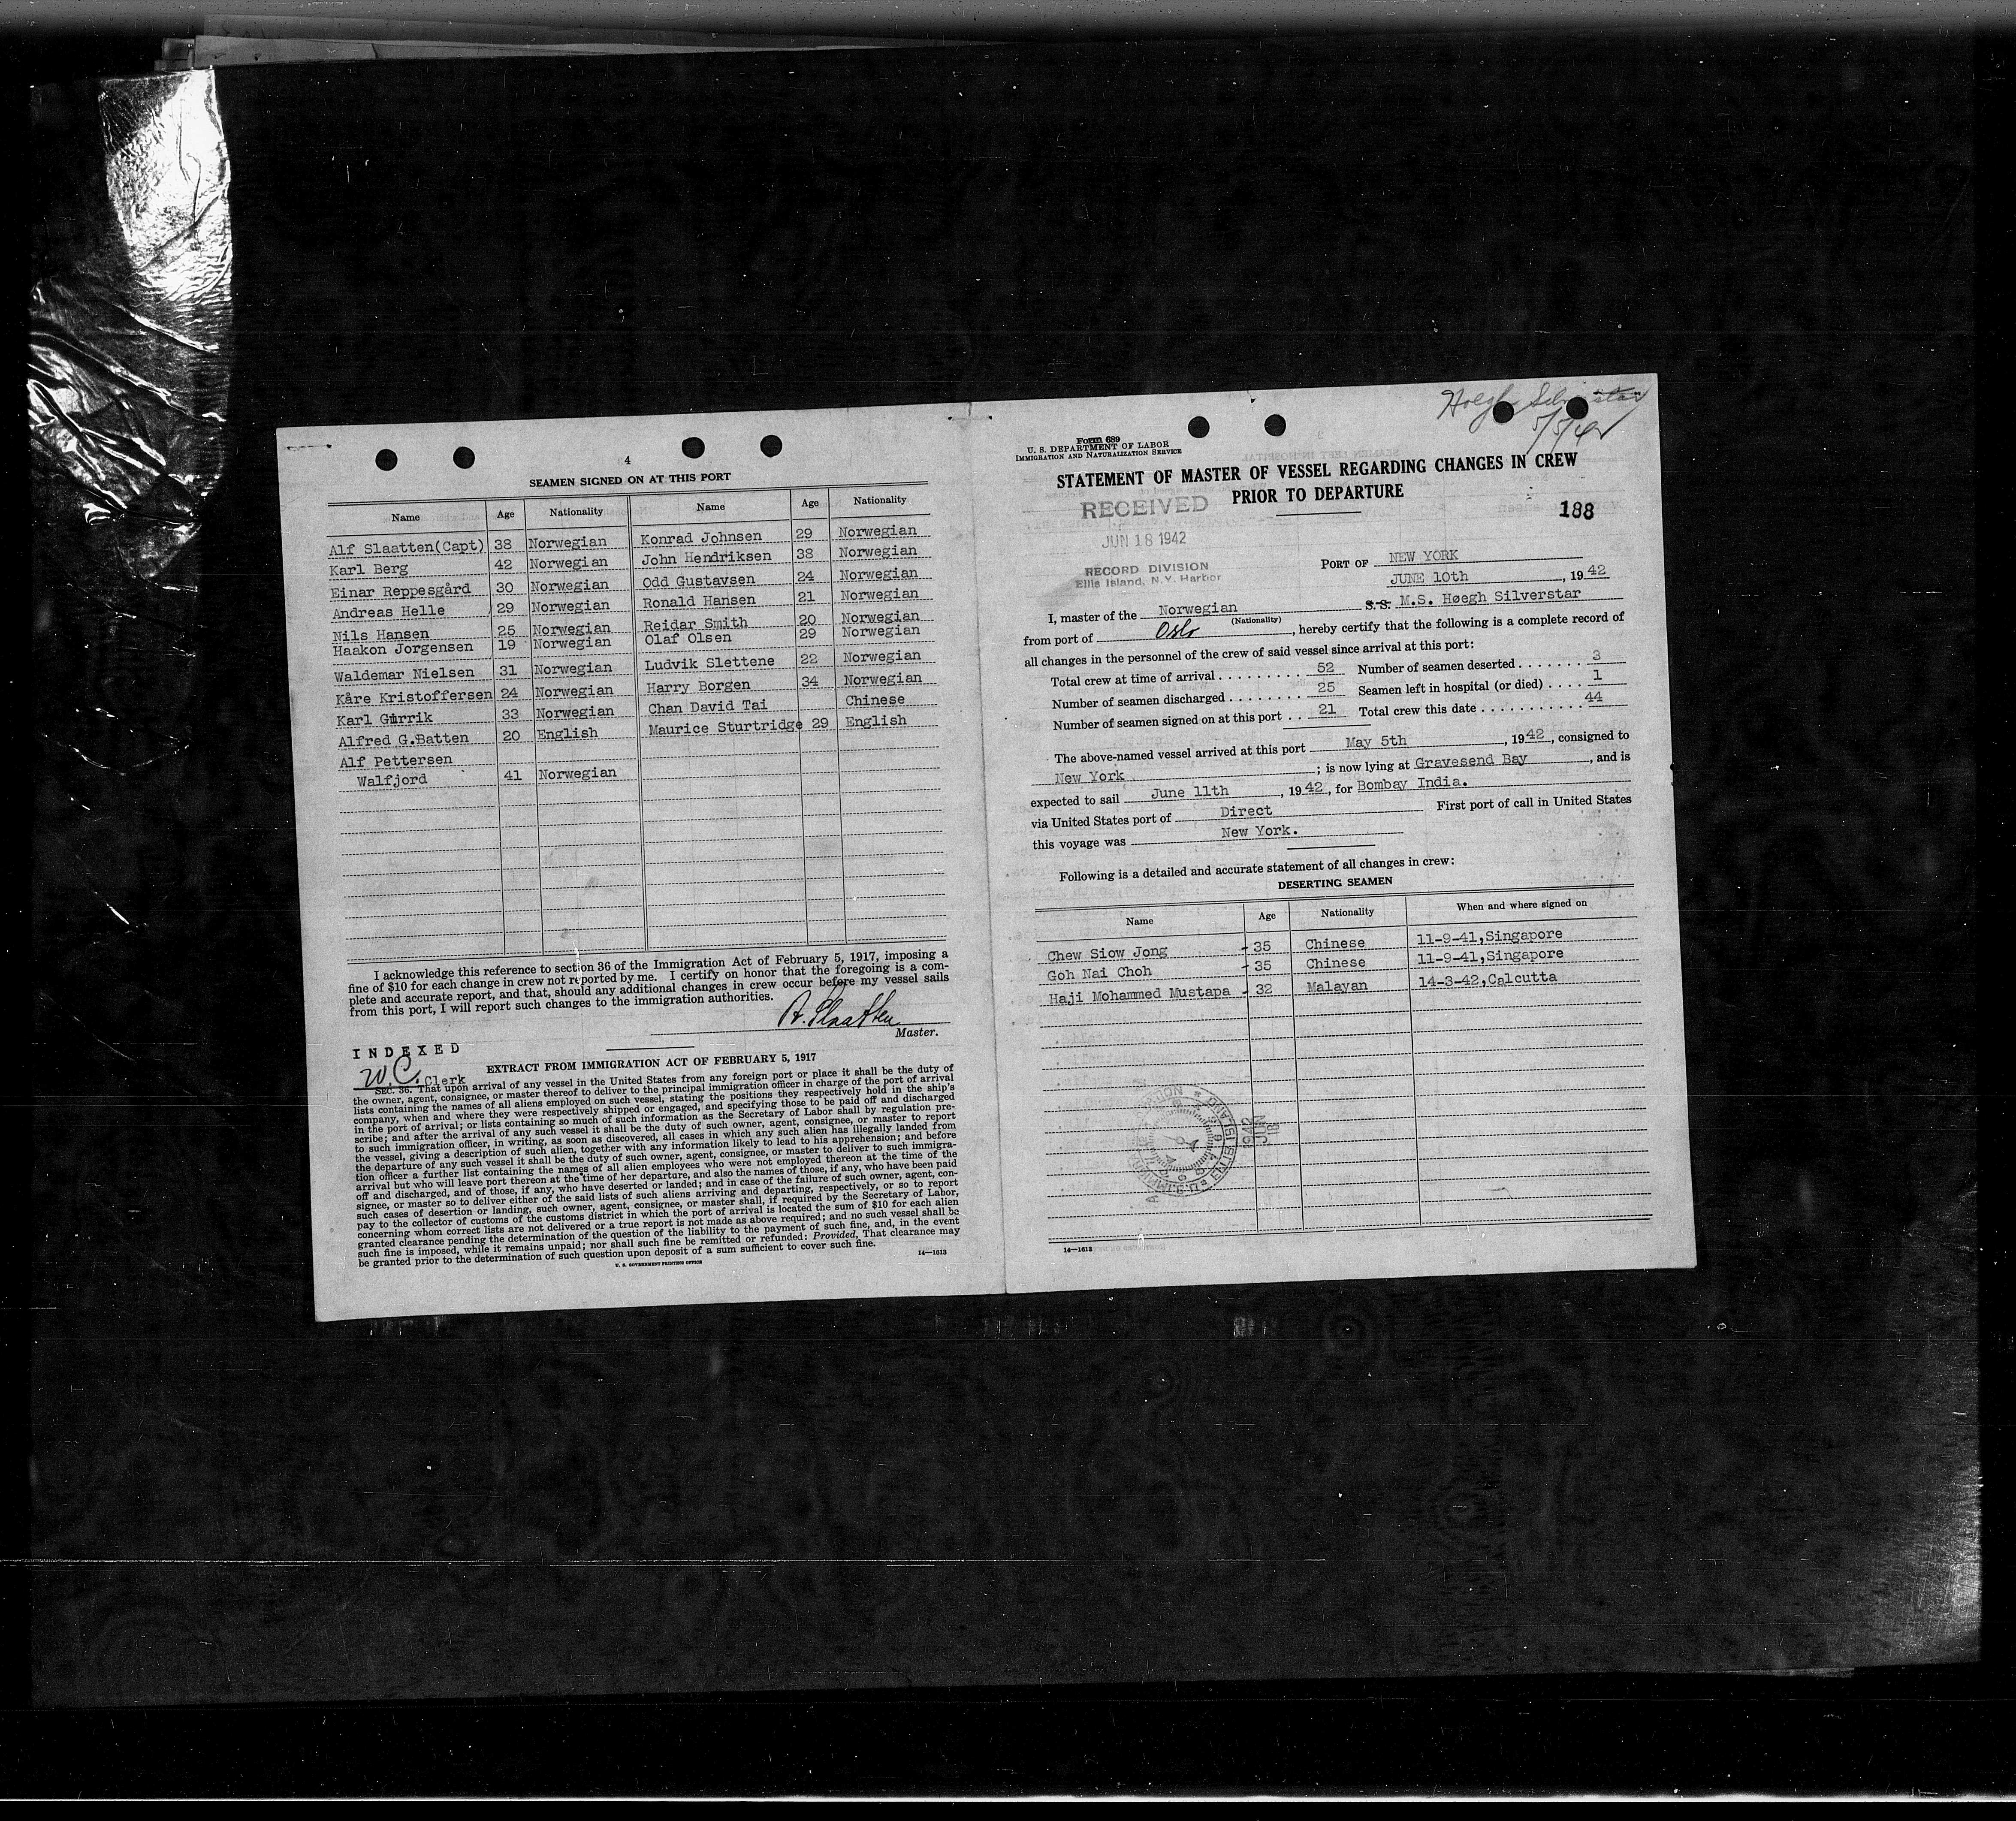 4
SEAMEN SIGNED ON AT THIS PORT
Name Age Nationality Name Age Nationality
Alf Slaatten(Capt) 38 Norwegian Konrad Johnsen 29 Norwegian
Karl Berg 42 Norwegian John Hendriksen 38 Norwegian
Einar Reppesgård 30 Norwegian Odd Gustavsen 24 Norwegian
Andreas Helle 29 Norwegian Ronald Hansen 21 Norwegian
Nils Hansen 25 Norwegian Reidar Smith 20 Norwegian
Haakon Jorgensen 19 Norwegian Olaf Olsen 29 Norwegian
Waldemar Nielsen 31 Norwegian Ludvik Slettene 22 Norwegian
Kåre Kristoffersen 24 Norwegian Harry Borgen 34 Norwegian
Karl Gurrik 33 Norwegian Chan David Tai Chinese
Alfred G.Batten 20 English Maurice Sturtridge 29 English
Alf Pettersen
Walfjord 41 Norwegian
I acknowledge this reference to section 36 of the Immigration Act of February 5, 1917, imposing a
fine of $10 for each change in crew not reported by me. I certify on honor that the foregoing is a com-
plete and accurate report, and that, should any additional changes in crew occur before my vessel sails
from this port, I will report such changes to the immigration authorities.
A. Slaatten
Master.
INDEXED
W.C. Clerk
EXTRACT FROM IMMIGRATION ACT OF FEBRUARY 5, 1917
SEC. 36. That upon arrival of any vessel in the United States from any foreign port or place it shall be the duty of
the owner, agent, consignee, or master thereof to deliver to the principal immigration officer in charge of the port of arrival
lists containing the names of all aliens employed on such vessel, stating the positions they respectively hold in the ship's
company, when and where they were respectively shipped or engaged, and specifying those to be paid off and discharged
in the port of arrival; or lists containing so much of such information as the Secretary of Labor shall by regulation pre-
scribe; and after the arrival of any such vessel it shall be the duty of such owner, agent, consignee, or master to report
to such immigration officer, in writing, as soon as discovered, all cases in which any such alien has illegally landed from
the vessel, giving a description of such alien, together with any information likely to lead to his apprehension; and before
the departure of any such vessel it shall be the duty of such owner, agent, consignee, or master to deliver to such immigra-
tion officer a further list containing the names of all alien employees who were not employed thereon at the time of the
arrival but who will leave port thereon at the time of her departure, and also the names of those, if any, who have been paid
off and discharged, and of those, if any, who have deserted or landed; and in case of the failure of such owner, agent, con-
signee, or master so to deliver either of the said lists of such aliens arriving and departing, respectively, or so to report
such cases of desertion or landing, such owner, agent, consignee, or master shall, if required by the Secretary of Labor,
pay to the collector of customs of the customs district in which the port of arrival is located the sum of $10 for each alien
concerning whom correct lists are not delivered or a true report is not made as above required; and no such vessel shall be
granted clearance pending the determination of the question of the liability to the payment of such fine, and, in the event
such fine is imposed, while it remains unpaid; nor shall such fine be remitted or refunded: Provided, That clearance may
be granted prior to the determination of such question upon deposit of a sum sufficient to cover such fine.
U. S. GOVERNMENT PRINTING OFFICE
14—1613
Hoegh Silverstar
5/5/42
Form 689
U. S. DEPARTMENT OF LABOR
IMMIGRATION AND NATURALIZATION SERVICE
STATEMENT OF MASTER OF VESSEL REGARDING CHANGES IN CREW
PRIOR TO DEPARTURE
188
RECEIVED
JUN 18 1942
RECORD DIVISION
Ellis Island, N.Y. Harbor
PORT OF NEW YORK
JUNE 10th, 1942
I, master of the Norwegian S.S. M.S. Høegh Silverstar
(Nationality)
from port of Oslo, hereby certify that the following is a complete record of
all changes in the personnel of the crew of said vessel since arrival at this port:
Total crew at time of arrival . . . . . . . . . 52 Number of seamen deserted . . . . . . . 3
Number of seamen discharged . . . . . . . . 25 Seamen left in hospital (or died) . . . . 1
Number of seamen signed on at this port . . 21 Total crew this date . . . . . . . . . . . 44
The above-named vessel arrived at this port May 5th, 1942, consigned to
New York; is now lying at Gravesend Bay, and is
expected to sail June 11th, 1942, for Bombay India.
via United States port of Direct First port of call in United States
this voyage was New York.
Following is a detailed and accurate statement of all changes in crew:
DESERTING SEAMEN
Name Age Nationality When and where signed on
Chew Siow Jong - 35 Chinese 11-9-41,Singapore
Goh Nai Choh - 35 Chinese 11-9-41,Singapore
Haji Mohammed Mustapa - 32 Malayan 14-3-42,Calcutta
14—1613